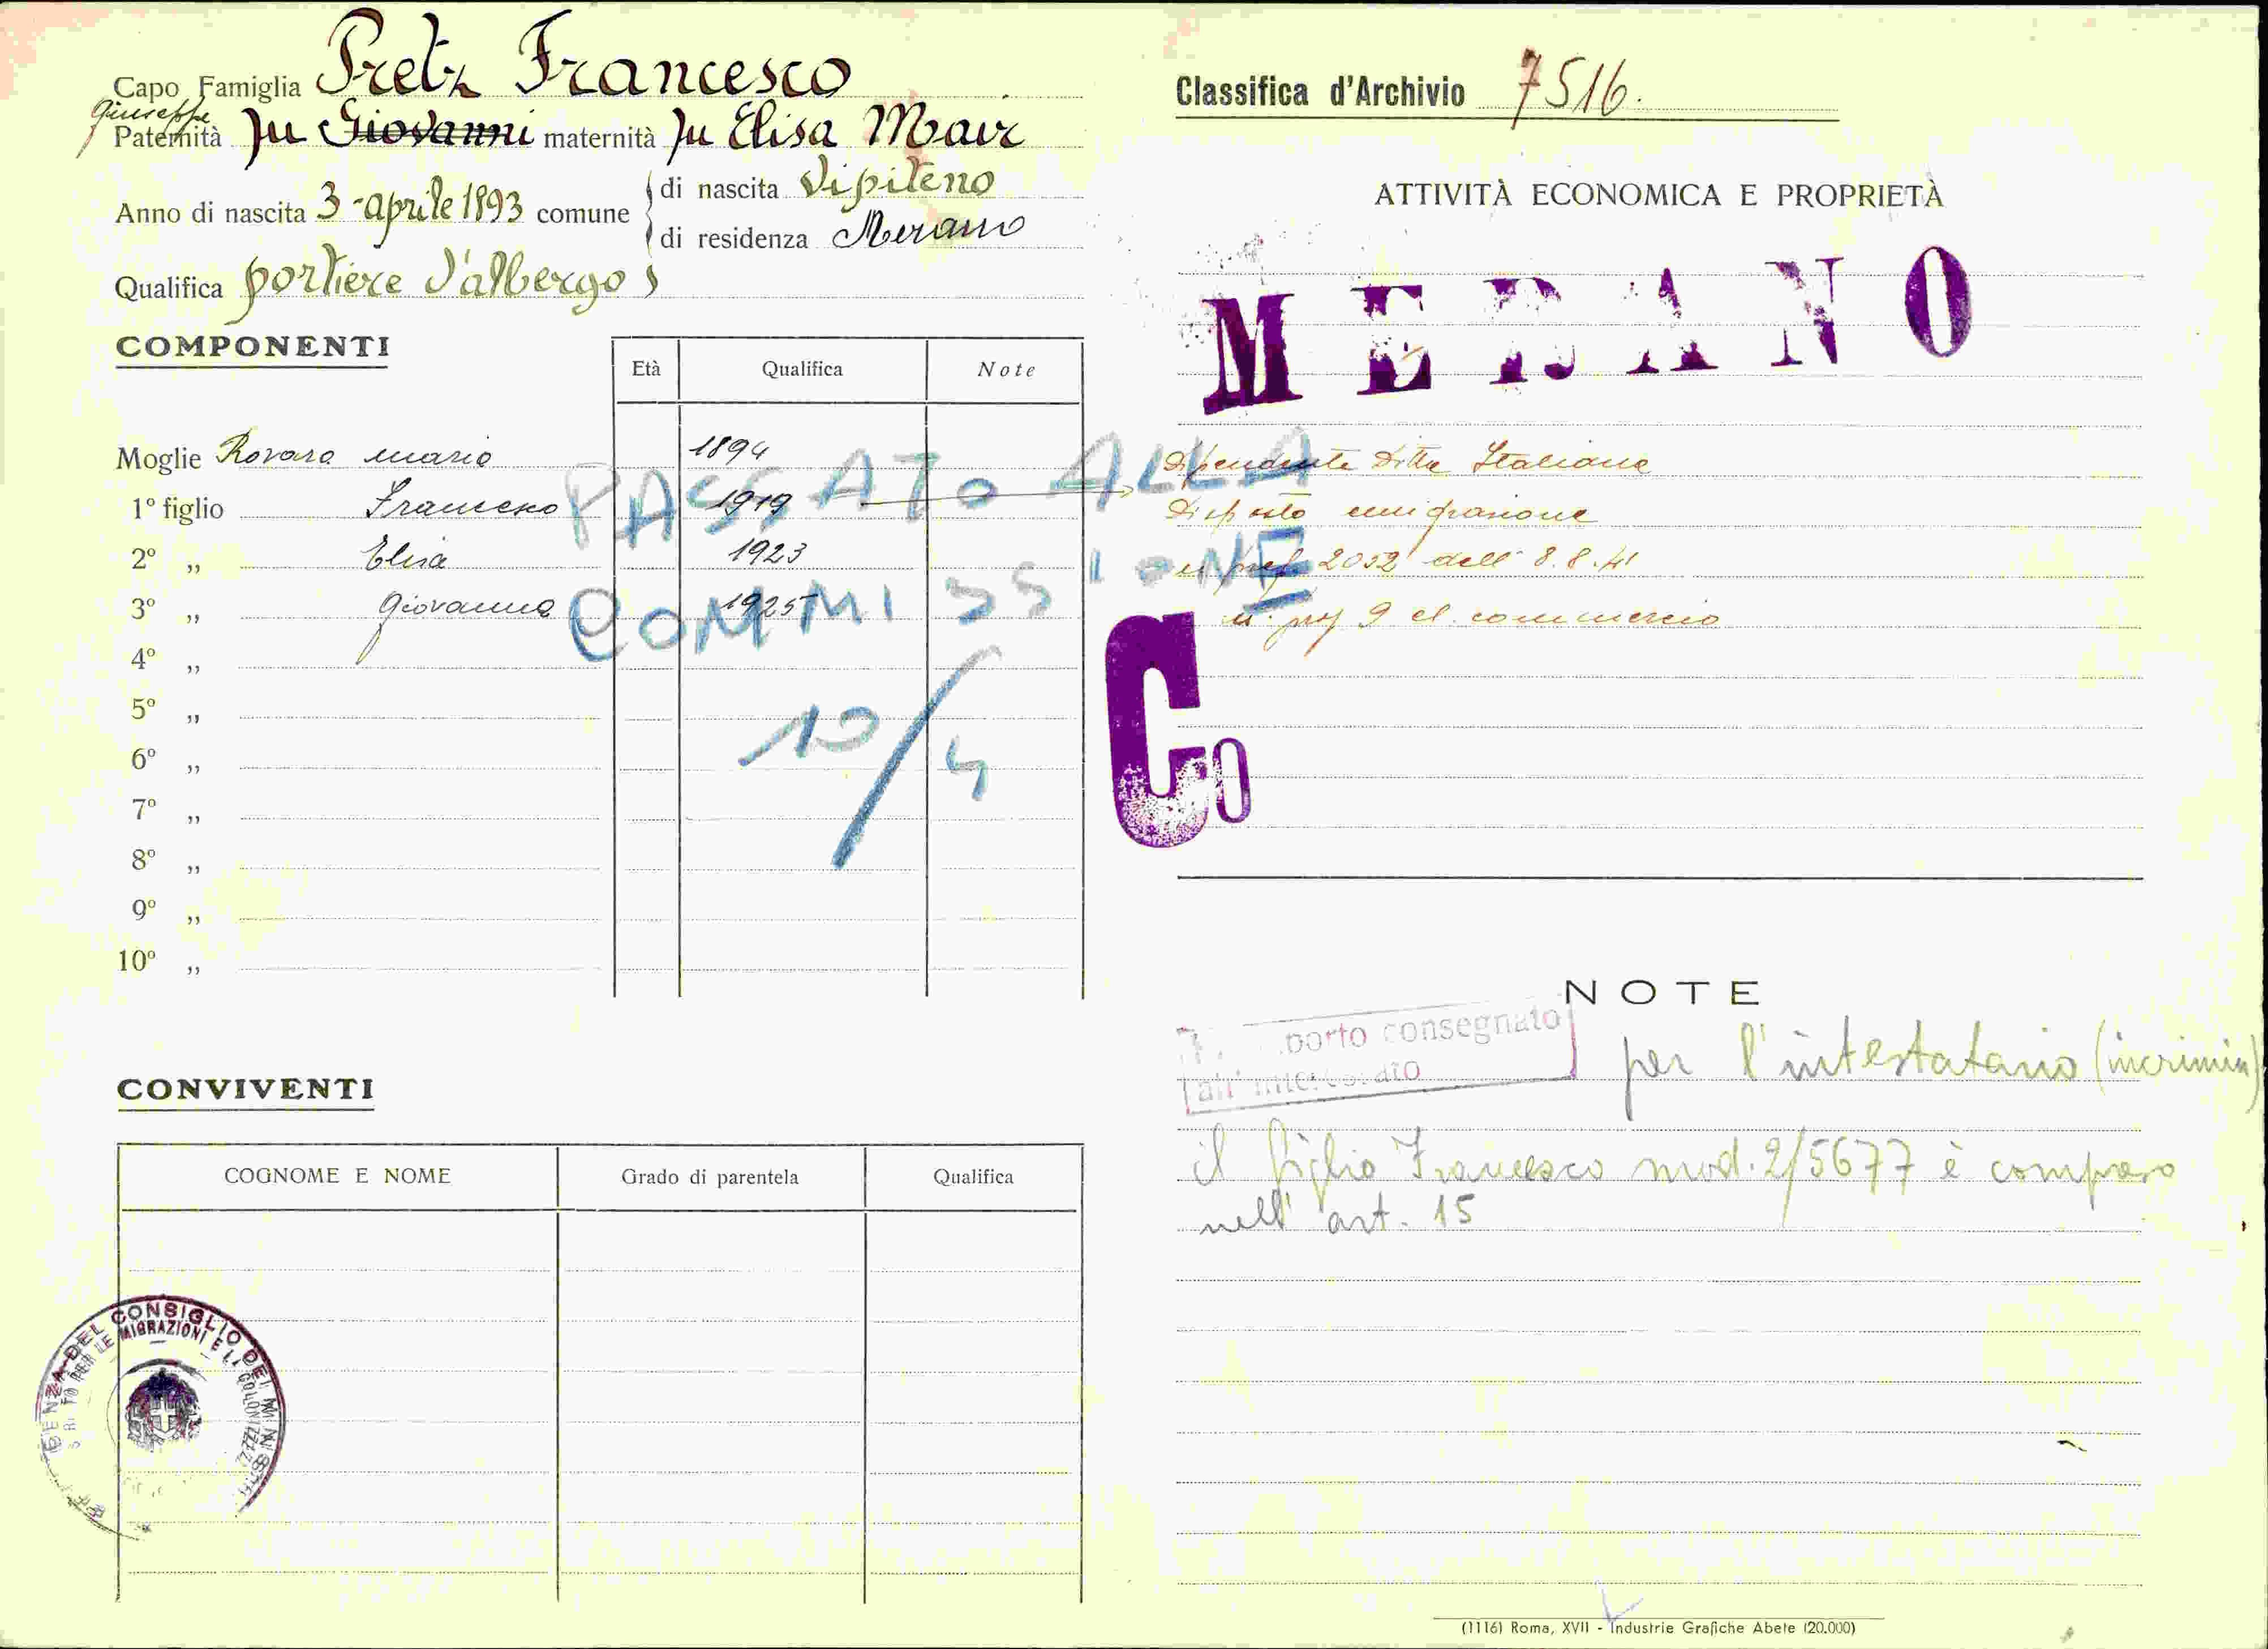 Capo Famiglia Pretz Francesco
Giuseppe
Paternità fu Giovanni maternità fu Elisa Mair
Anno di nascita 3-aprile 1893 comune
di nascita Vipiteno
di residenza Merano
Qualifica portiere d'albergo
COMPONENTI
Età Qualifica Note
Moglie Rovara Maria 1894
1º figlio Francesco 1919
2º „ Elisa 1923
3º „ Giovanna 1925
4º „
5º „
6º „
7º „
8º „
9º „
10º „
PASSATO ALLA
COMMISSIONE
10/4
CONVIVENTI
COGNOME E NOME Grado di parentela Qualifica
Classifica d'Archivio 7516.
ATTIVITÀ ECONOMICA E PROPRIETÀ
MERANO
Dipendente Ditta Italiana
Disposto emigrazione
pref 2052 dell' 8.8.41
9 commercio
Co
NOTE
porto consegnato
all'
per l'intestatario (incrimin)
il figlio Francesco mod. 2/5677 è compreso
nell' art. 15
DEL CONSIGLIO DEI MINISTRI
PER LE MIGRAZIONI E LA
(1116) Roma, XVII - Industrie Grafiche Abete (20.000)